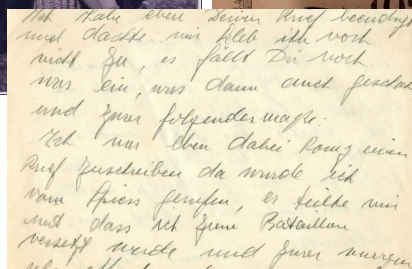 Ich habe eben Deinen Brief beendigt
und dachte mir kleb ihn noch
nicht zu, es fällt Dir noch
was ein, was dann auch geschah
und zwar folgendermaße:
Ich war eben dabei Romy einen
Brief zuschreiben da wurde ich
vom Spiess gerufen, er teilte mir
mit dass ich zum Bataillon
versetzt werde und zwar